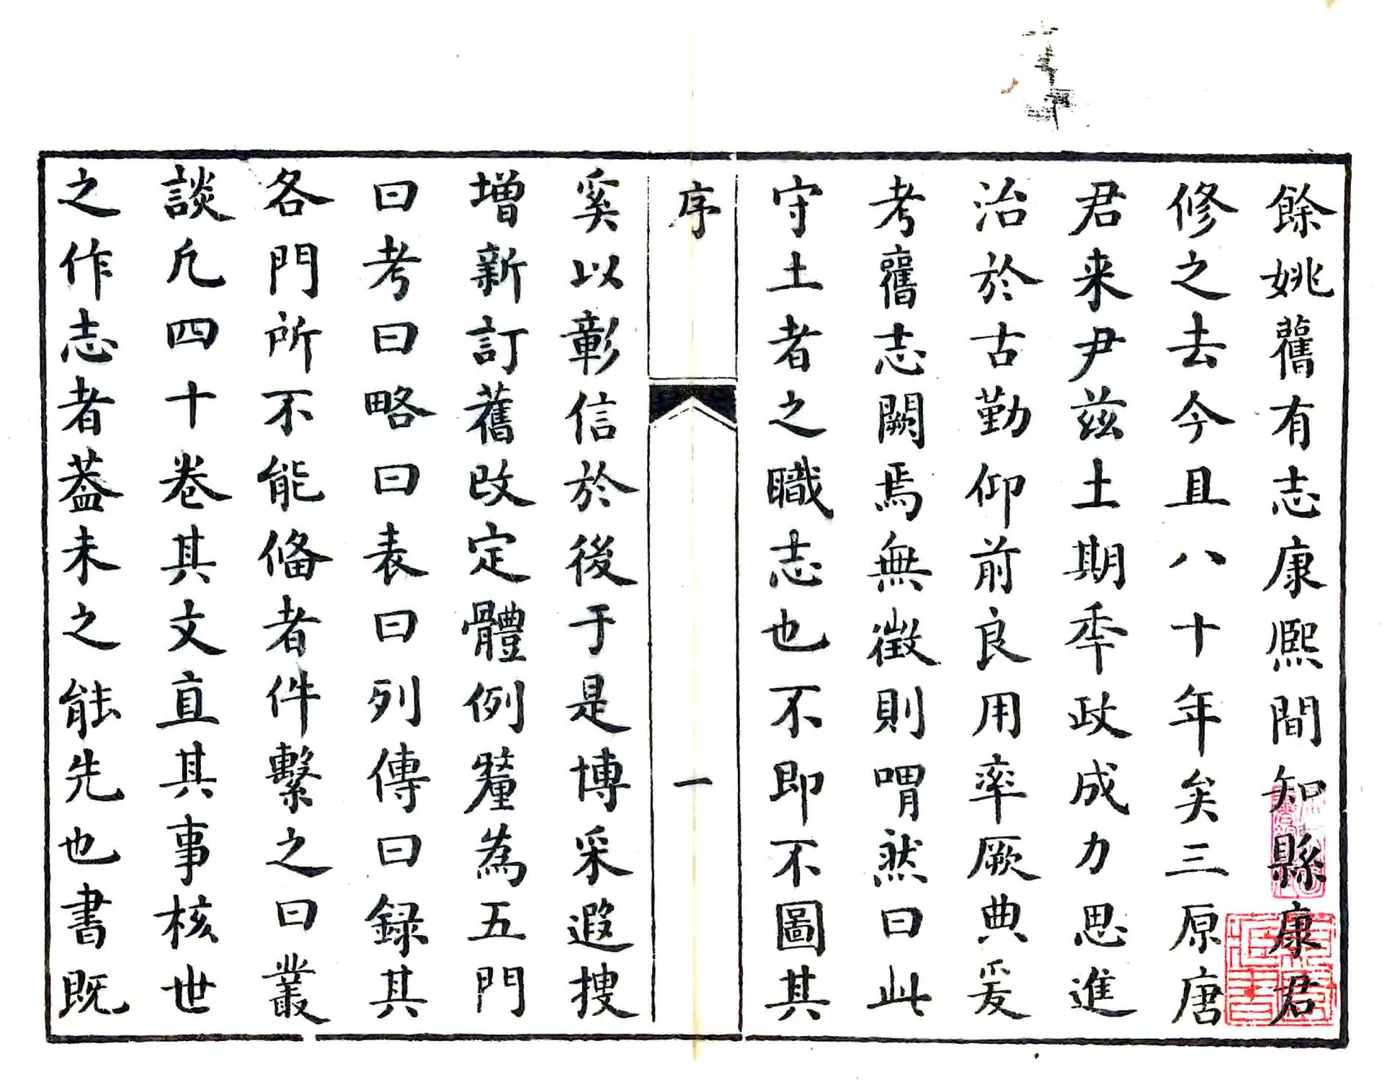 餘姚舊有志康熙間知縣康君
修之去今且八十年矣三原唐
君来尹兹土期年政成力思進
治於古勤仰前良用率厥典爰
考舊志闕焉無徴則喟然曰此
守土者之職志也不即不圖其
序
一
奚以彰信於後于是博采遐搜
增新訂舊改定體例釐為五門
曰考曰略曰表曰列傳曰録其
各門所不能俻者件繫之曰叢
談凡四十卷其文直其事核世
之作志者葢未之能先也書既